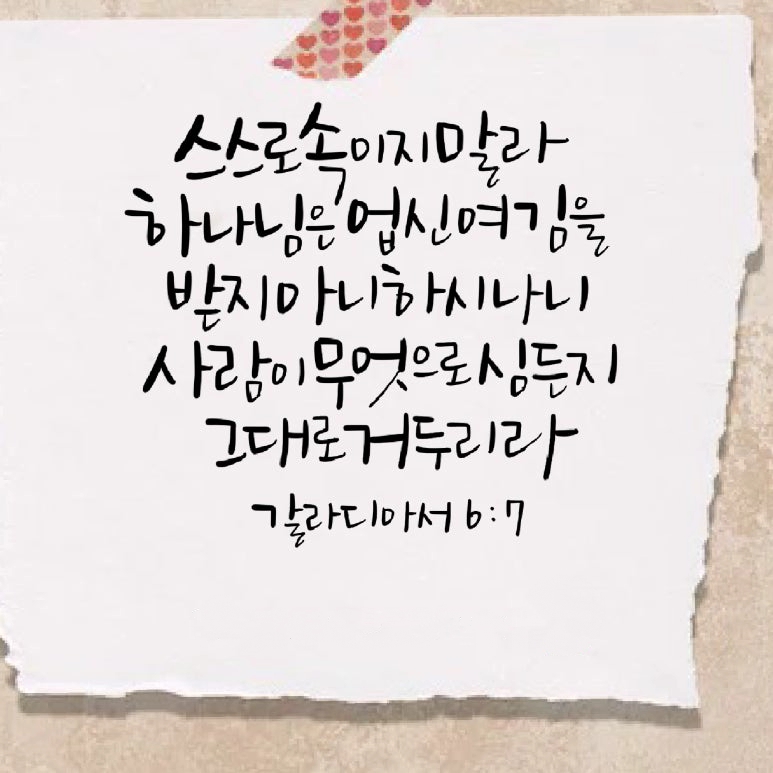 스스로 속이지 말라
하나님은 업신여김을
받지 아니하시나니
사람이 무엇으로 심든지
그대로 거두리라
갈라디아서 6:7